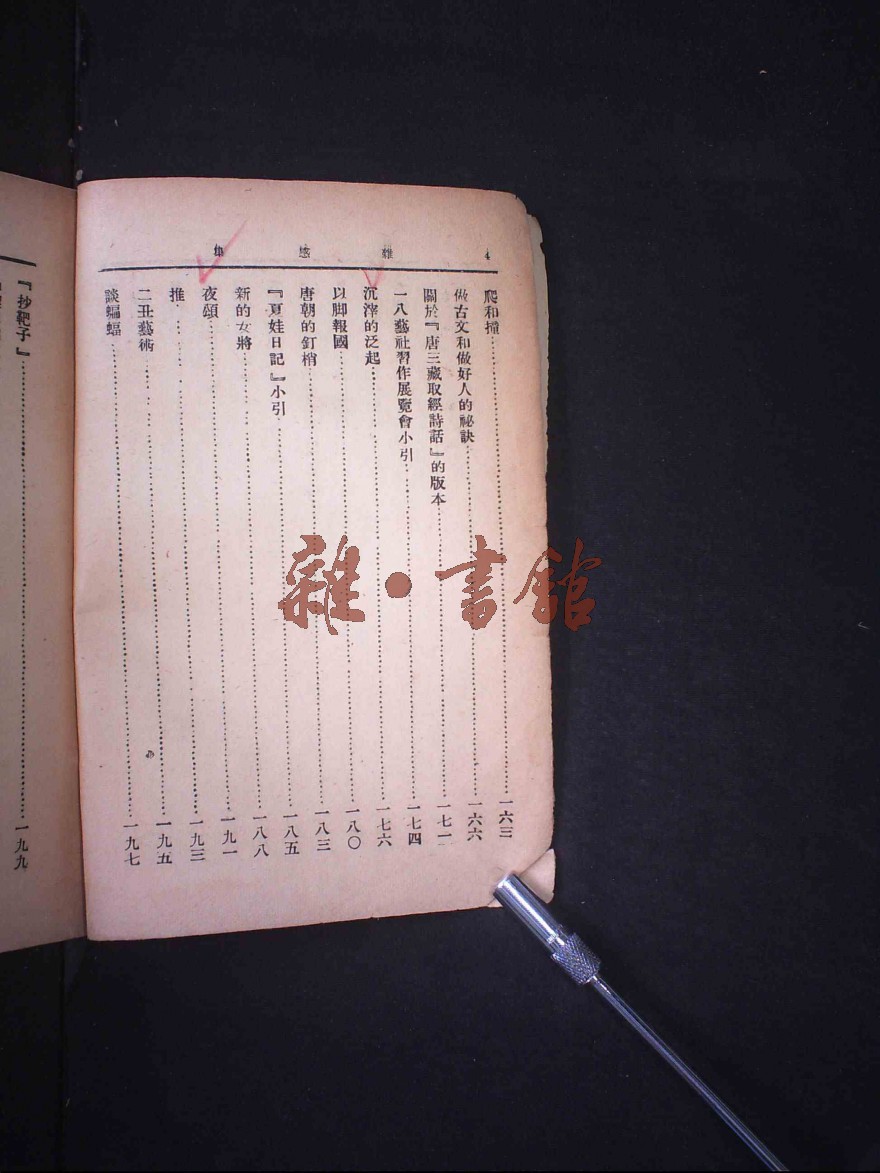 雜感集 4
爬和撞 一六三
做古文和做好人的祕訣 一六六
關於『唐三藏取經詩話』的版本 一七一
一八藝社習作展覽會小引 一七四
沉滓的泛起 一七六
以脚報國 一八〇
唐朝的釘梢 一八三
『夏娃日記』小引 一八五
新的女將 一八八
夜頌 一九一
推 一九三
二丑藝術 一九五
談蝙蝠 一九七
『抄靶子』 一九九
雜·書館